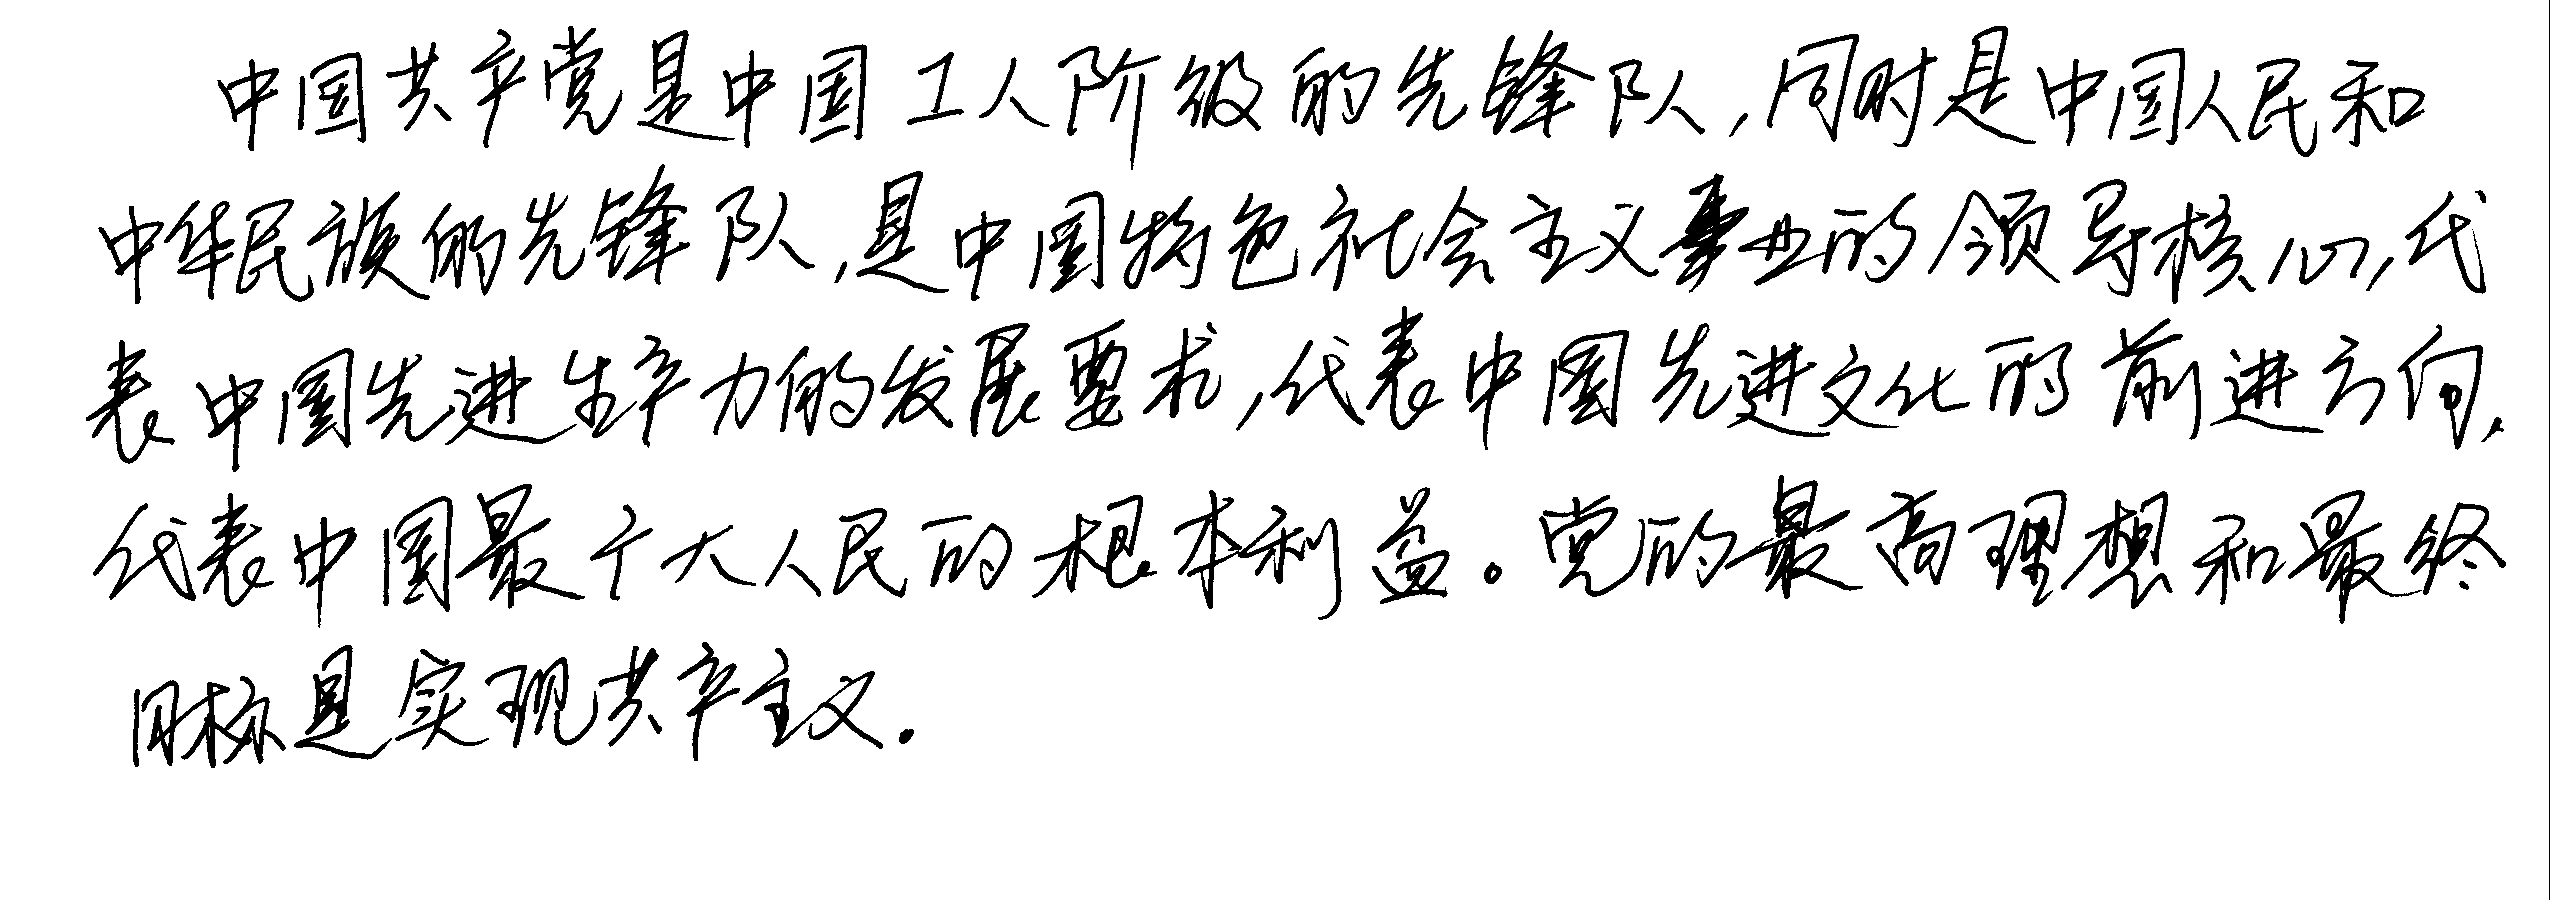 中国共产党是中国工人阶级的先锋队,同时是中国人民和
中华民族的先锋队,是中国特色社会主义事业的领导核心,代
表中国先进生产力的发展要求,代表中国先进文化的前进方向,
代表中国最广大人民的根本利益。党的最高理想和最终
目标是实现共产主义.